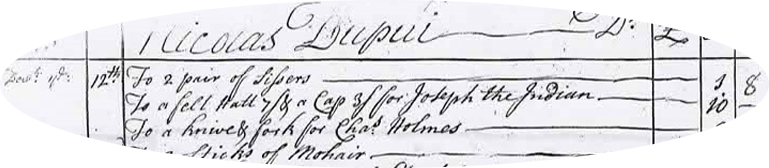 Nicolas Dupui Dr. £
12th To 2 pair of Sissers 1 8
To a felt Hatt 7/ & a Cap 3/ for Joseph the Indian 10
To a knive & fork for Chas. Holmes
Sticks of Mohair